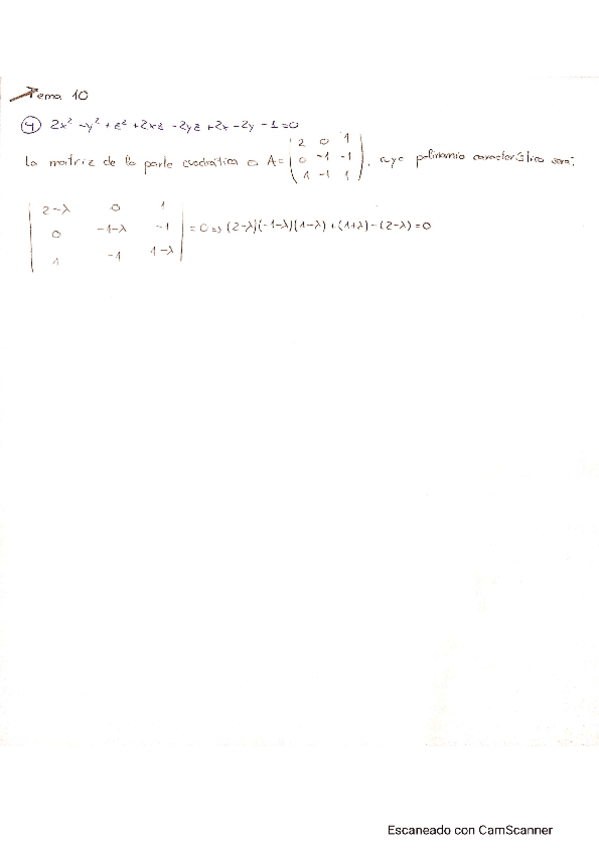 Tema 10
④ 2x² -y² + z² +2xz -2yz +2x -2y -1=0
La matriz de la parte cuadrática es A= ( 2 0 1
0 -1 -1
1 -1 1 ), cuyo polinomio característico será:
| 2-λ 0 1
0 -1-λ -1
1 -1 1-λ | = 0 => (2-λ)(-1-λ)(1-λ)+(1+λ)-(2-λ)=0
Escaneado con CamScanner